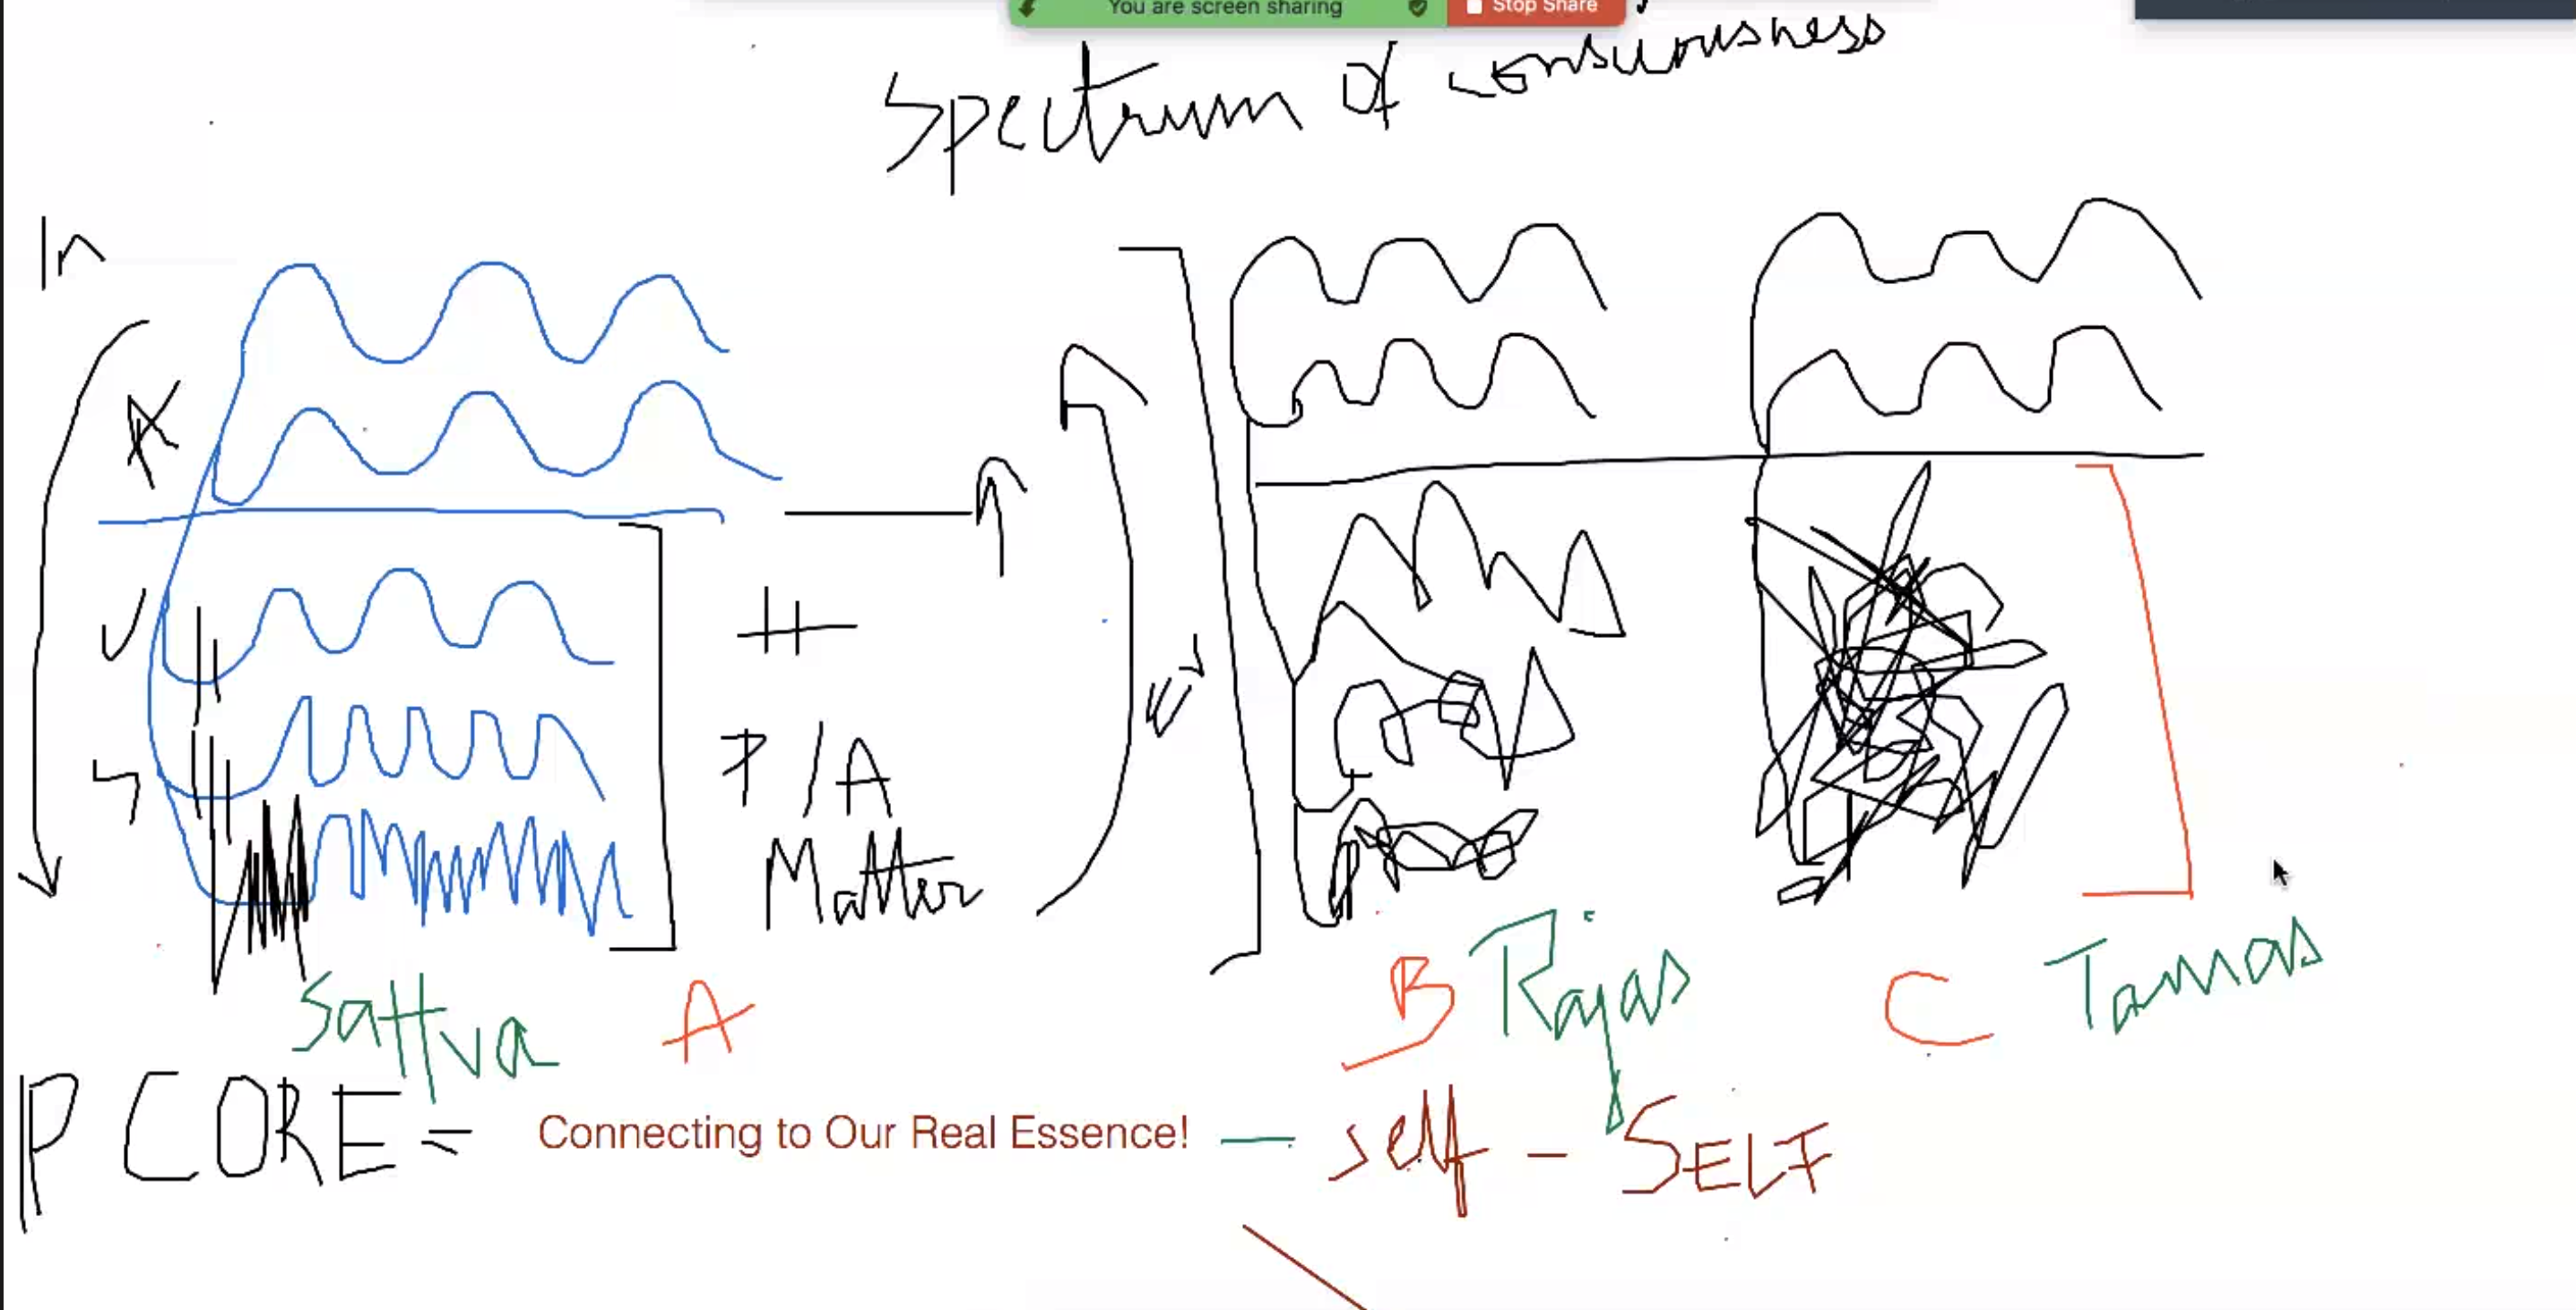 You are screen sharing Stop Share
Spectrum of consciousness
In
H
P / A
Matter
Sattva A B Rajas C Tamas
P CORE = Connecting to Our Real Essence! — self - SELF